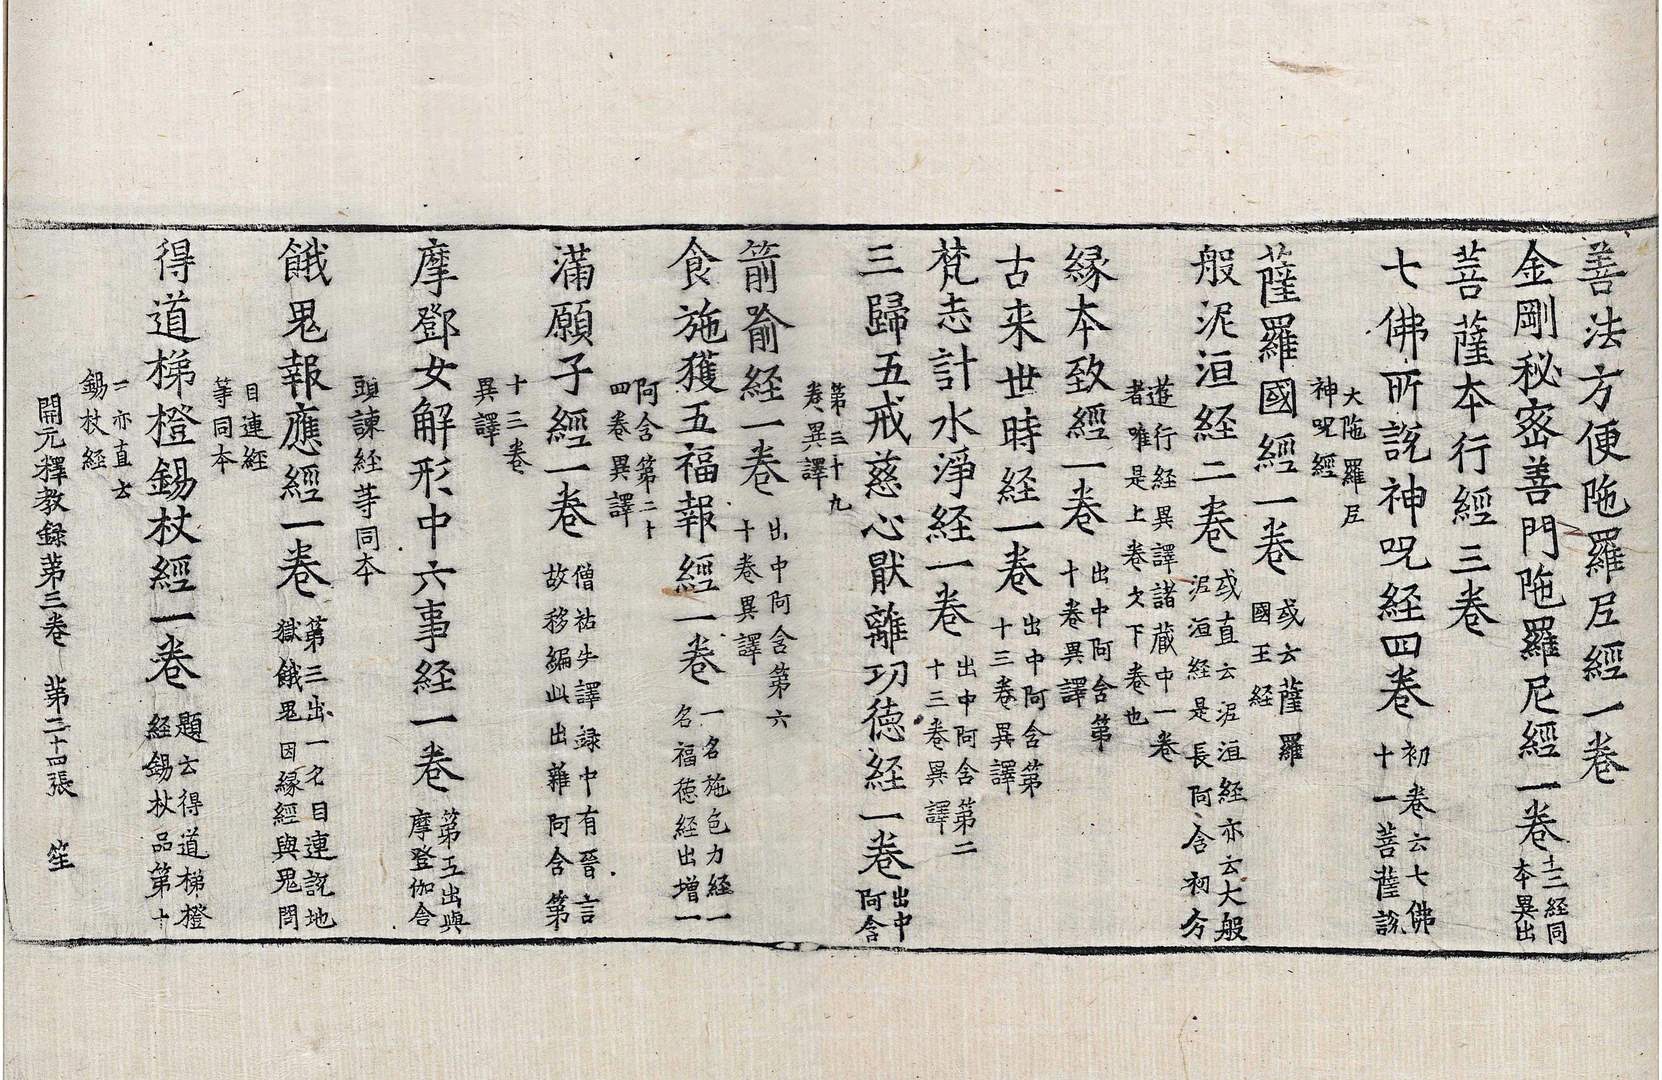 善法方便陁羅尼經一卷
金剛秘密善門陁羅尼經一卷 十二經同本異出
菩薩本行經三卷
七佛所說神呪経四卷 初卷云七佛十一菩薩說
大陁羅尼神呪經
薩羅國經一卷 或云薩羅國王経
般泥洹経二卷 或直云泥洹經亦云大般泥洹経是長阿含初分
遊行経異譯諸蔵中一卷者唯是上卷欠下卷也
緣本致經一卷 出中阿含第十卷異譯
古来世時経一卷 出中阿含第十三卷異譯
梵志計水淨経一卷 出中阿含第二十三卷異譯
三歸五戒慈心厭離功徳経一卷 出中阿含
第三十九卷異譯
箭喻経一卷 出中阿含第六十卷異譯
食施獲五福報經一卷 一名施色力経一名福徳経出增一
阿含第二十四卷異譯
滿願子經一卷 僧祐失譯録中有晉言故移編此出雜阿含第
十三卷異譯
摩鄧女解形中六事経一卷 第五出與摩登伽舎
頭諫経䓁同本
餓鬼報應經一卷 第三出一名目連說地獄餓鬼因緣經與鬼問
目連経等同本
得道梯橙錫杖經一卷 題云得道梯橙経錫杖品第十
二亦直云錫杖経
開元釋教録第三卷 第二十四張 笙